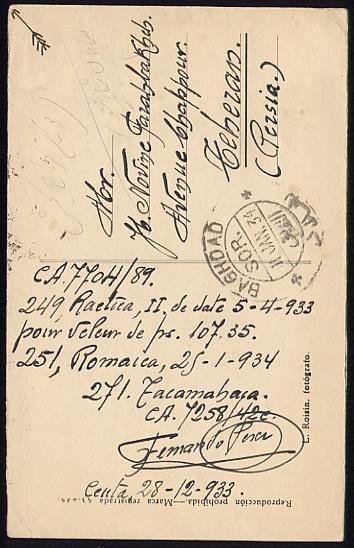 Hbr.
Novine Farahbakhch.
Avenue Chahpour.
Teheran.
(Persia.)
BAGHDAD
SOR.
11 JAN. 34
بغداد
CA. 7704/89.
249, Raetica, II. de date 5-4-933
pour valeur de ps. 107.35.
251, Romaica, 25-1-934
271. Tacamahaca.
CA. 7258/42c.
Fernando Perez
Ceuta, 28-12-933.
L. Roisin, fotógrafo.
Reproducción prohibida.—Marca registrada